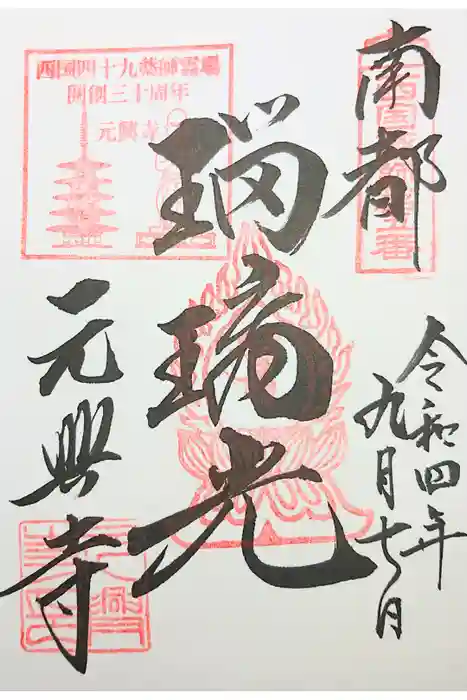 南都
令和四年
九月七日
瑠璃光
元興寺
西国四十九薬師霊場
開創三十周年
元興寺